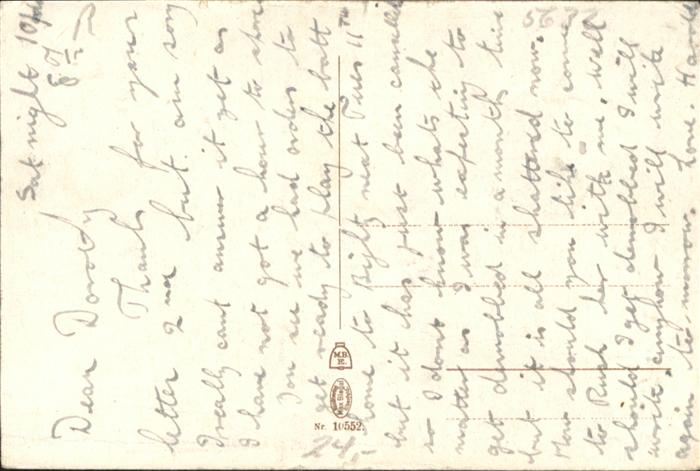 Sat night 10 pm
Dear Dorothy
Thanks for your
letter 2nd but am sorry
I really cant answer it yet as
I have not got a hour to spare
You see we had orders to
get ready to play the batt
home to Blight next Tues 11th
but it has just been cancelled
so I dont know whats the
matter as I was expecting to
get demobbed in a month's time
but it is all shattered now.
How should you like to come
to Russia with me. Well
should I get demobbed I will
write anyhow I will write
again to-morrow Love Harold
M.B.
E.
Nr. 10552.
24,-
5637